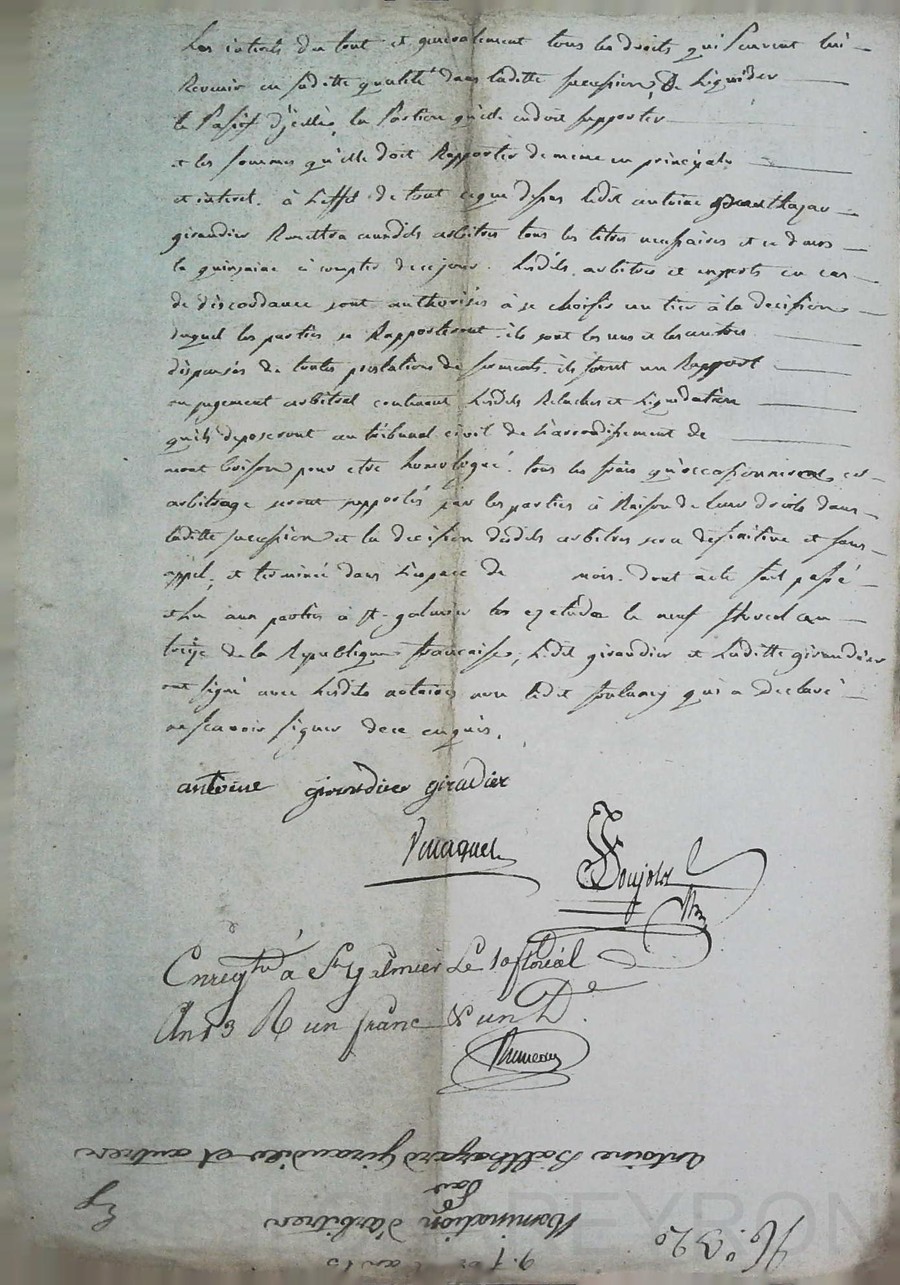 Les interets du tout et generalement tous les droits qui peuvent lui
Revenir en saditte qualité dans laditte succession, De Liquider
le Passif d'jcelle, la Portion qu'elle endoit supporter
et les sommes qu'elle doit Rapporter de meme en principale
et interet. à L'effet de tout ceque dessus ledit antoine
giraudier Remettra auxdits arbitres tous les titres necessaires et ce dans
la quinzaine à compter decejour. Lesdits arbitres et experts en cas
de discordance sont authorisés à se choisir un tier à la decision
duquel les parties se Rapporteront. ils sont les uns et les autres
dispensés de toutes prestations de serments. ils feront un Rapport
en jugement arbitral contenant Lesdits et Liquidation
qu'ils deposeront au tribunal civil de L'arrondissement de
mont brison pour etre homologué. tous les frais qu'occasionnera cet
arbitrage seront supportés par les parties à Raison de leurs droits dans
laditte succession et la decision desdits arbitres sera definitive et sans
appel, et terminée dans L'espace de mois. dont acte fait passé
et Lu aux parties à st-galmier les etude le neuf floreal an
treize de la Republique francaise, Ledit giraudier et Laditte giraudier
ont signé avec Lesdits notaires non ledit qui a Declaré
ne scavoir signer dece enquis.
antoine giraudier giraudier
Ponjolet
Enregtré à St galmier Le 10 floréal
An 13 R un franc & un De
Antoine Balthazard Giraudier et autres
par
Nomination d'arbitres
No. 320